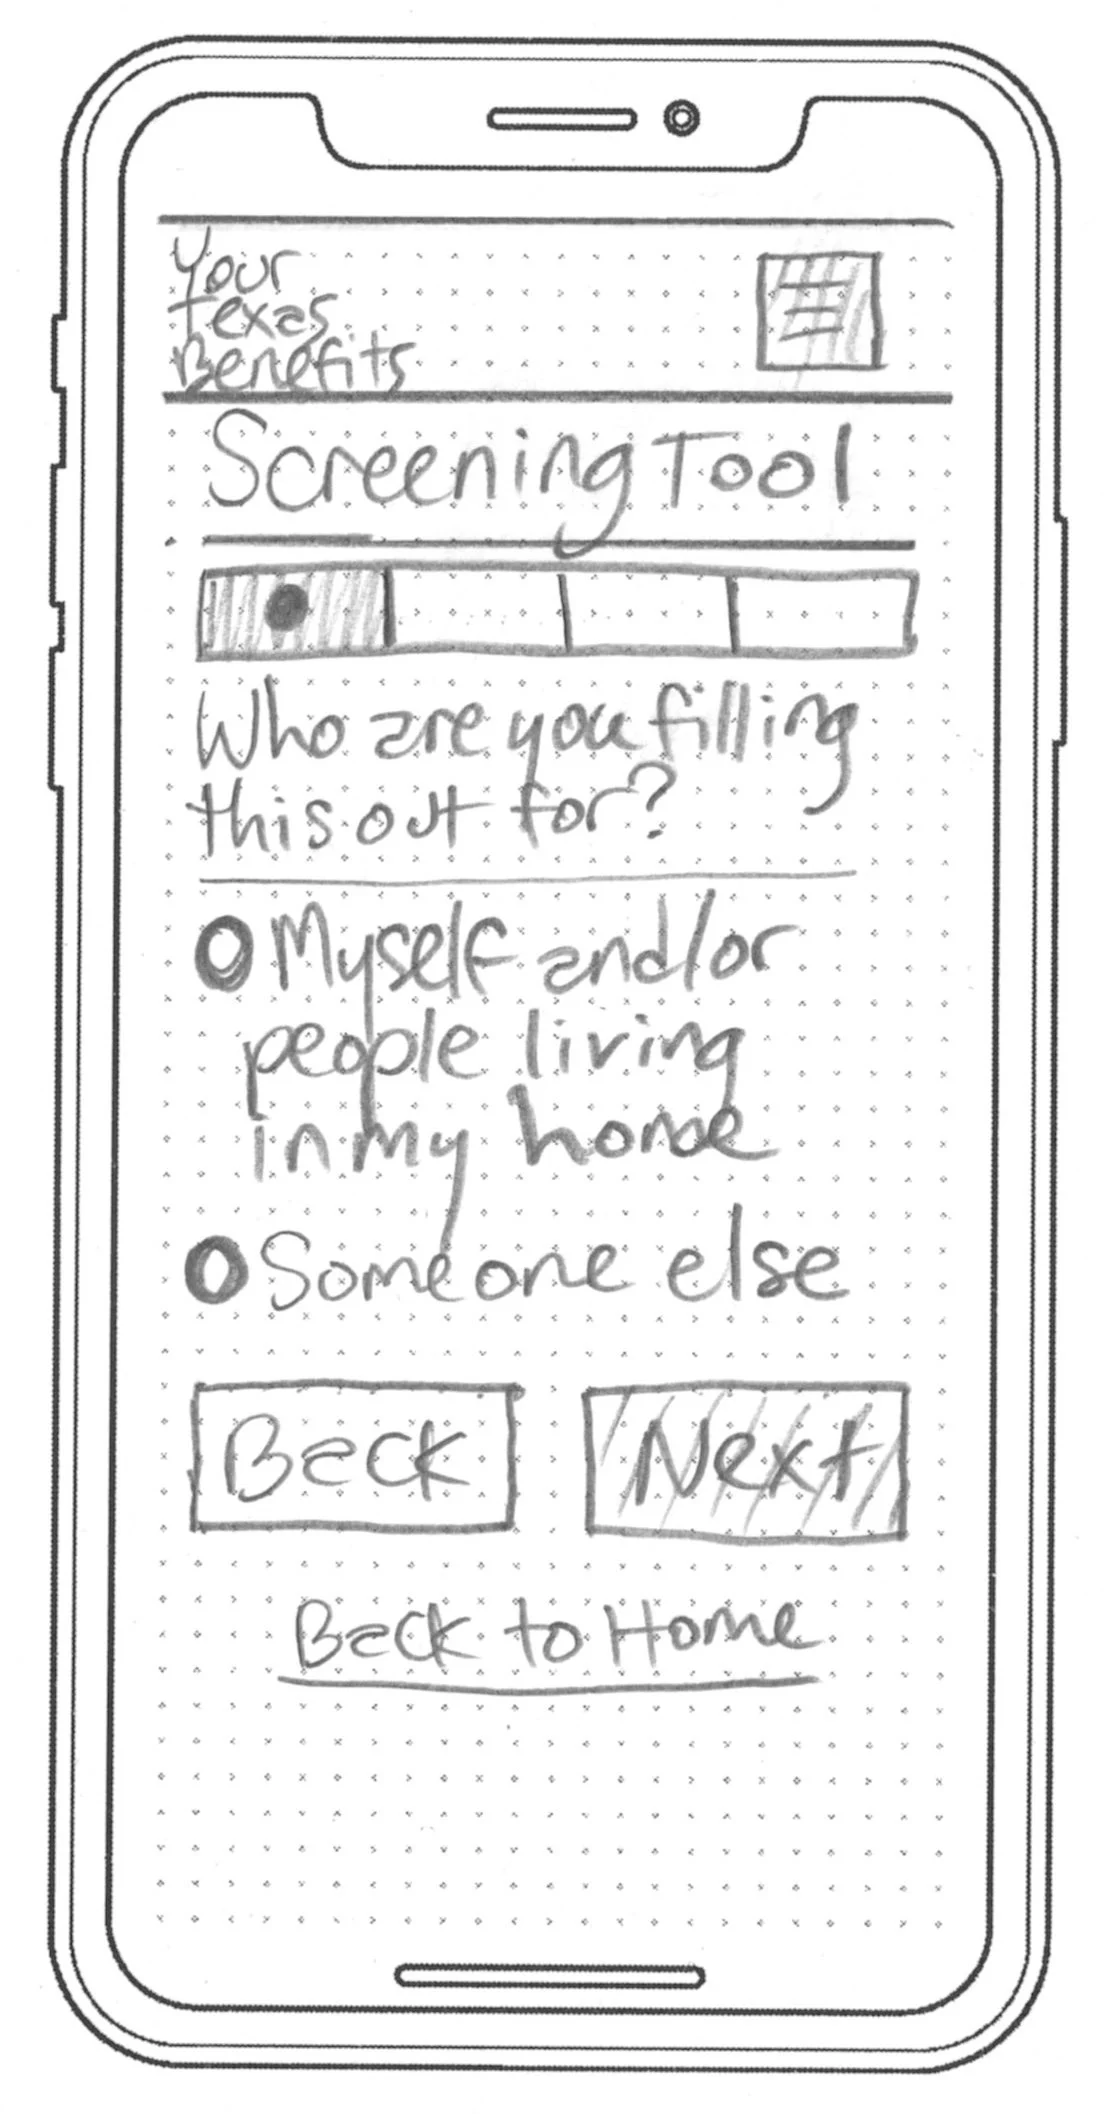 Your
Texas
Benefits
Screening Tool
Who are you filling
this out for?
Myself and/or
people living
in my home
Someone else
Back
Next
Back to Home